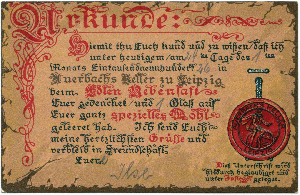 Urkunde:
Hiemit thu Euch kund und zu wißen, daß ich
unter heutigem, am Tage des
Monats Eintausendneunhundert
Auerbachs Keller zu Leipzig
beim Edlen Rebensaft
Euer gedenket und 1 Glas auf
Euer ganz spezielles Wohl
geleeret hab. Ich send Euch
meine herzlichsten Grüße und
verbleib in Freundschaft
Euer
Dies Unterschrift wird
hiedurch beglaubiget und
unter gelegt.